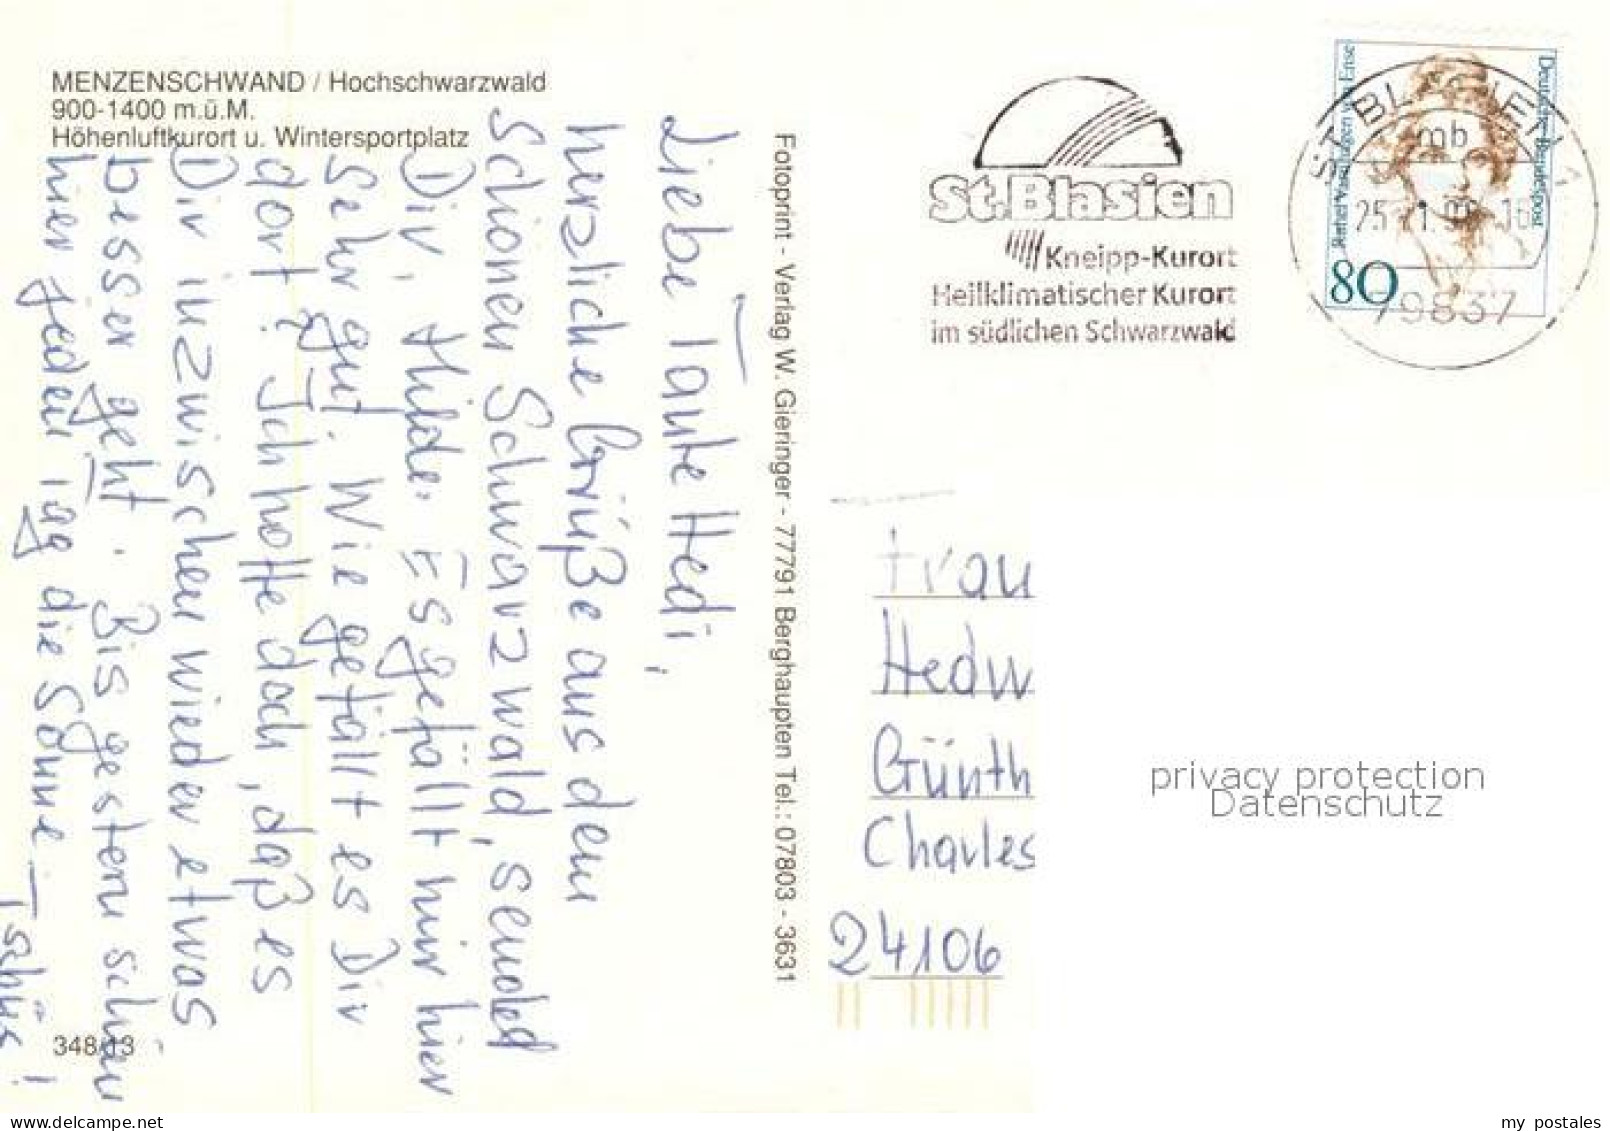 MENZENSCHWAND / Hochschwarzwald
900-1400 m.ü.M.
Höhenluftkurort u. Wintersportplatz
Liebe Tante Hedi,
herzliche Grüße aus dem
schönen Schwarzwald, sendet
Dir, Hilde. Es gefällt mir hier
sehr gut. Wie gefällt es Dir
dort? Ich hoffe doch, daß es
Dir inzwischen wieder etwas
besser geht. Bis gestern schien
hier jeden Tag die Sonne
Tschüs!
348/13
Fotoprint - Verlag W. Gieringer - 77791 Berghaupten Tel.: 07803 - 3631
St.Blasien
Kneipp-Kurort
Heilklimatischer Kurort
im südlichen Schwarzwald
Deutsche Bundespost
Rahel Varnhagen von Ense
80
ST BLASIEN 1
mb
79837
Frau
Hedw
Günth
Charles
24106
privacy protection
Datenschutz
my postales
www.delcampe.net